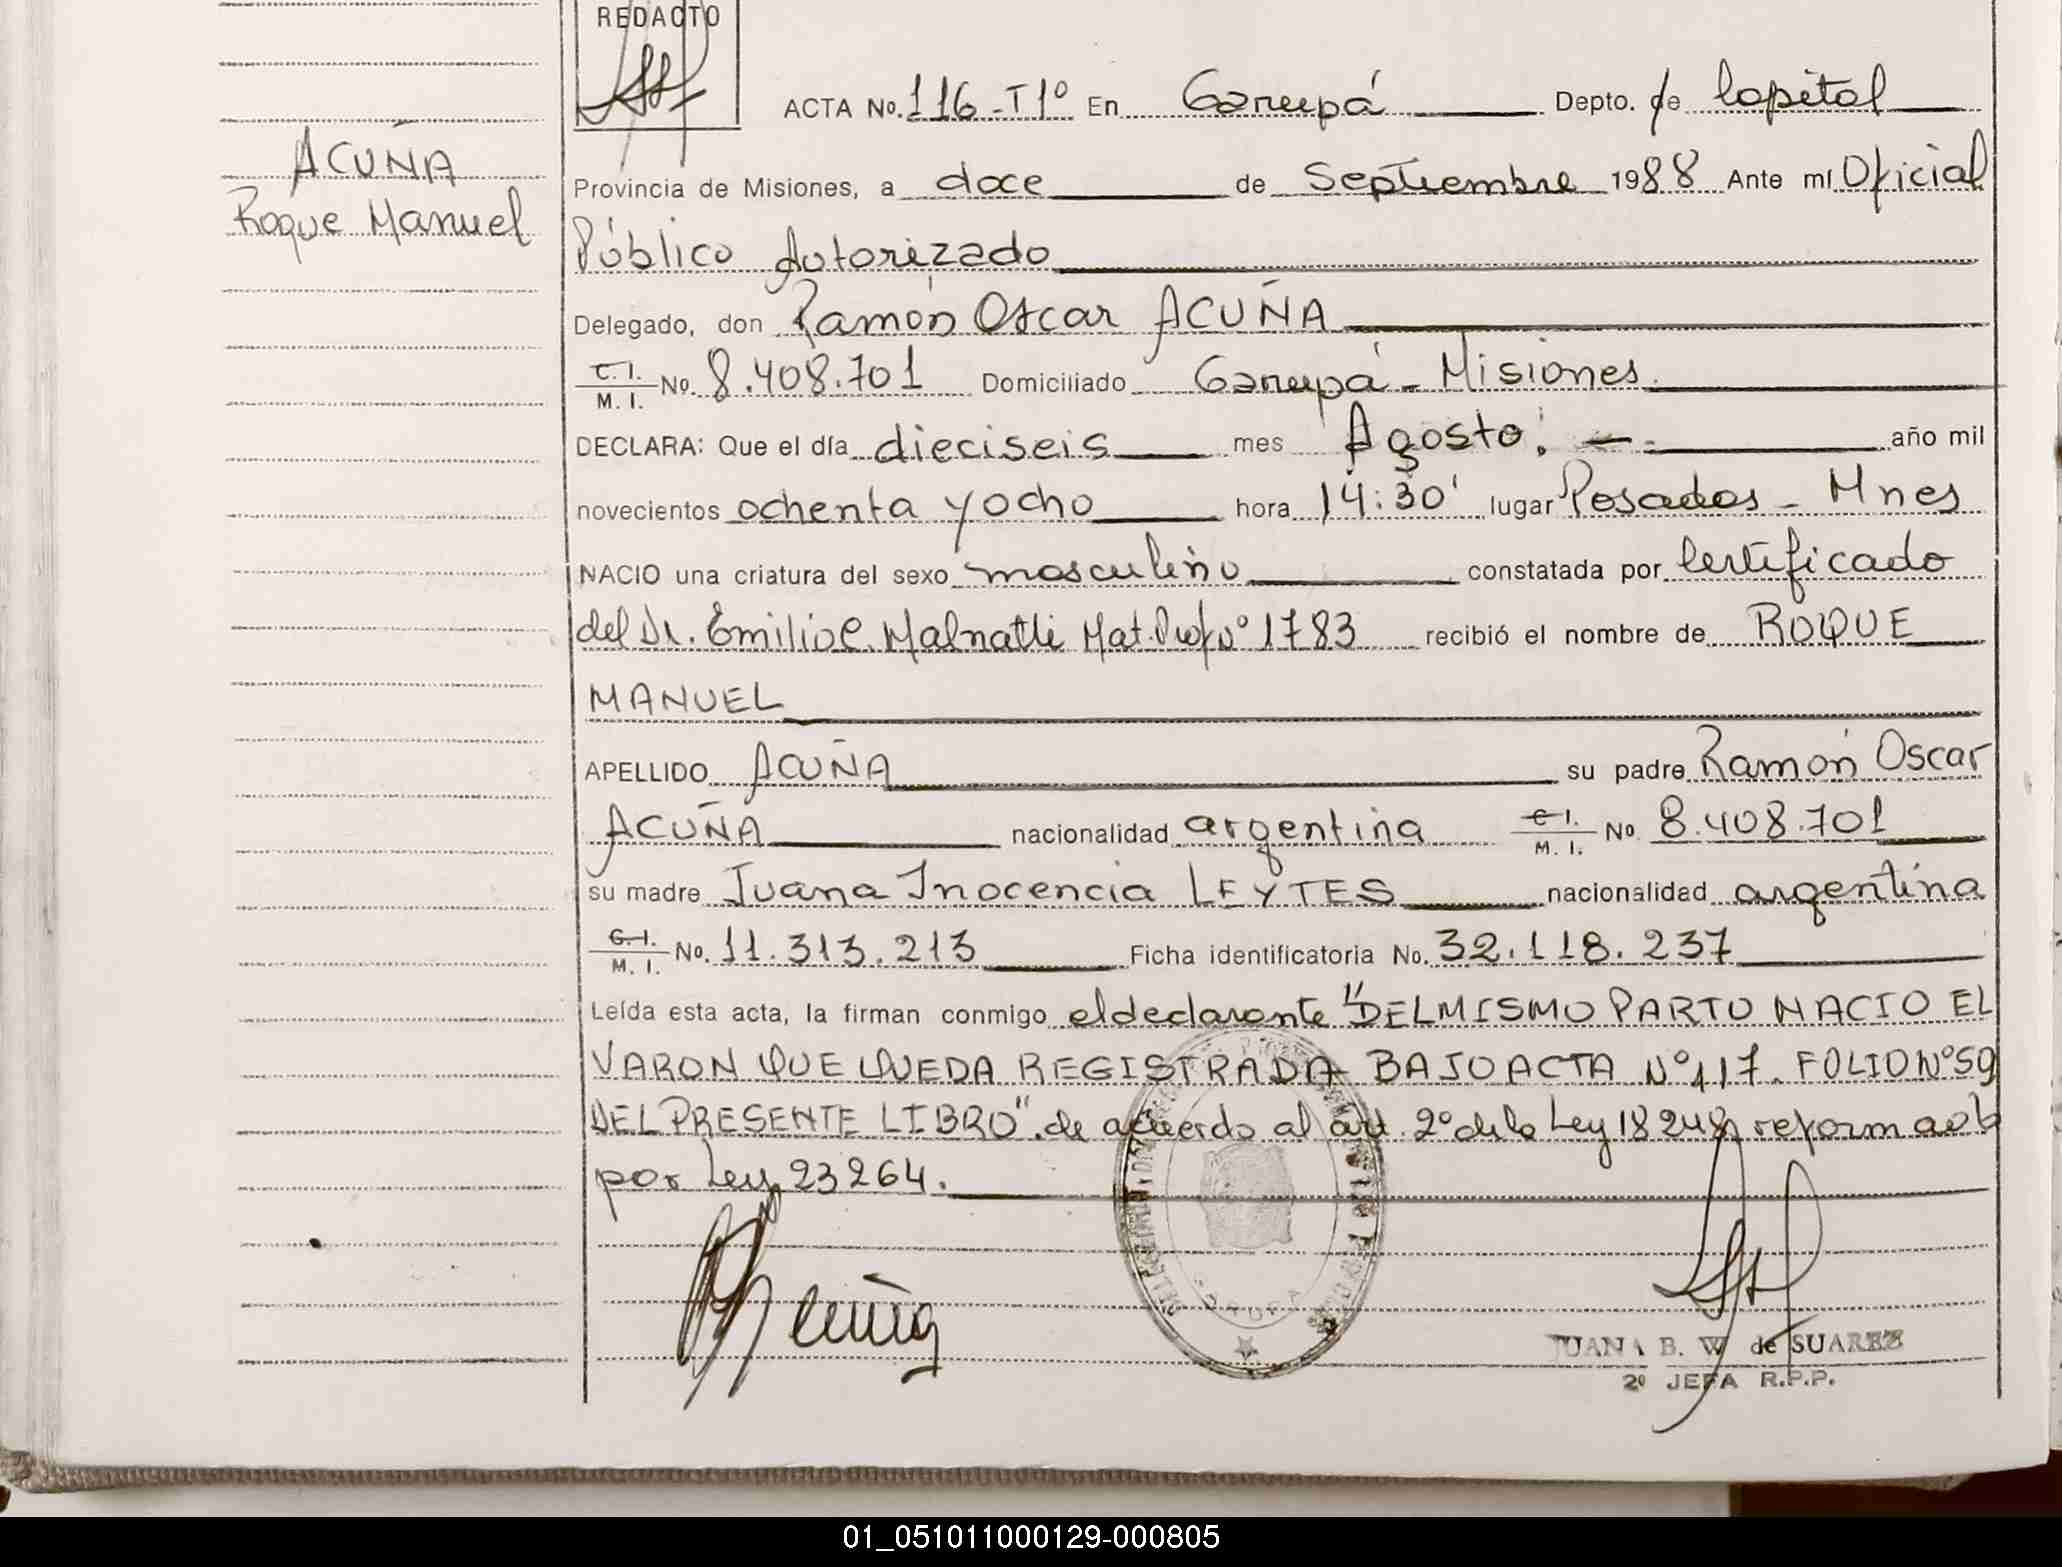 REDACTO
ACTA No. 116-T1º En Garupá Depto. de Capital
ACUÑA
Roque Manuel
Provincia de Misiones, a doce de Septiembre 1988 Ante mí Oficial
Público Autorizado
Delegado, don Ramón Oscar ACUÑA
C. I. M. I. No. 8.408.701 Domiciliado Garupá - Misiones.
DECLARA: Que el día dieciseis mes Agosto. año mil
novecientos ochenta y ocho hora 14:30' lugar Posadas - Mnes
NACIO una criatura del sexo masculino constatada por Certificado
del Dr. Emilio C. Malnatti Mat. Prof Nº 1783 recibió el nombre de ROQUE
MANUEL
APELLIDO ACUÑA su padre Ramón Oscar
ACUÑA nacionalidad argentina C. I. M. I. No. 8.408.701
su madre Juana Inocencia LEYTES nacionalidad argentina
C. I. M. I. No. 11.313.213 Ficha identificatoria No. 32.118.237
Leída esta acta, la firman conmigo el declarante "DEL MISMO PARTO NACIO EL
VARON QUE QUEDA REGISTRADA BAJO ACTA Nº 117. FOLIO Nº 59
DEL PRESENTE LIBRO". de acuerdo al art. 2º de la Ley 18248, reformada
por Ley 23264.
JUANA B. W. de SUAREZ
2º JEFA R.P.P.
01_051011000129-000805